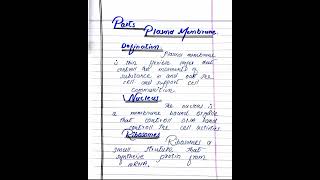 Parts
Plasma Membrane
Defination
Plasma membrane
is thin flexible layer that
control the movements of
substance in and out the
cell and support cell
communication
Nucleus
The nucleus is
a membrane bound organelle
that controll DNA and
controll the cell activities
Ribosomes
Ribosomes a
small structure that
synthesize protein from
mRNA.